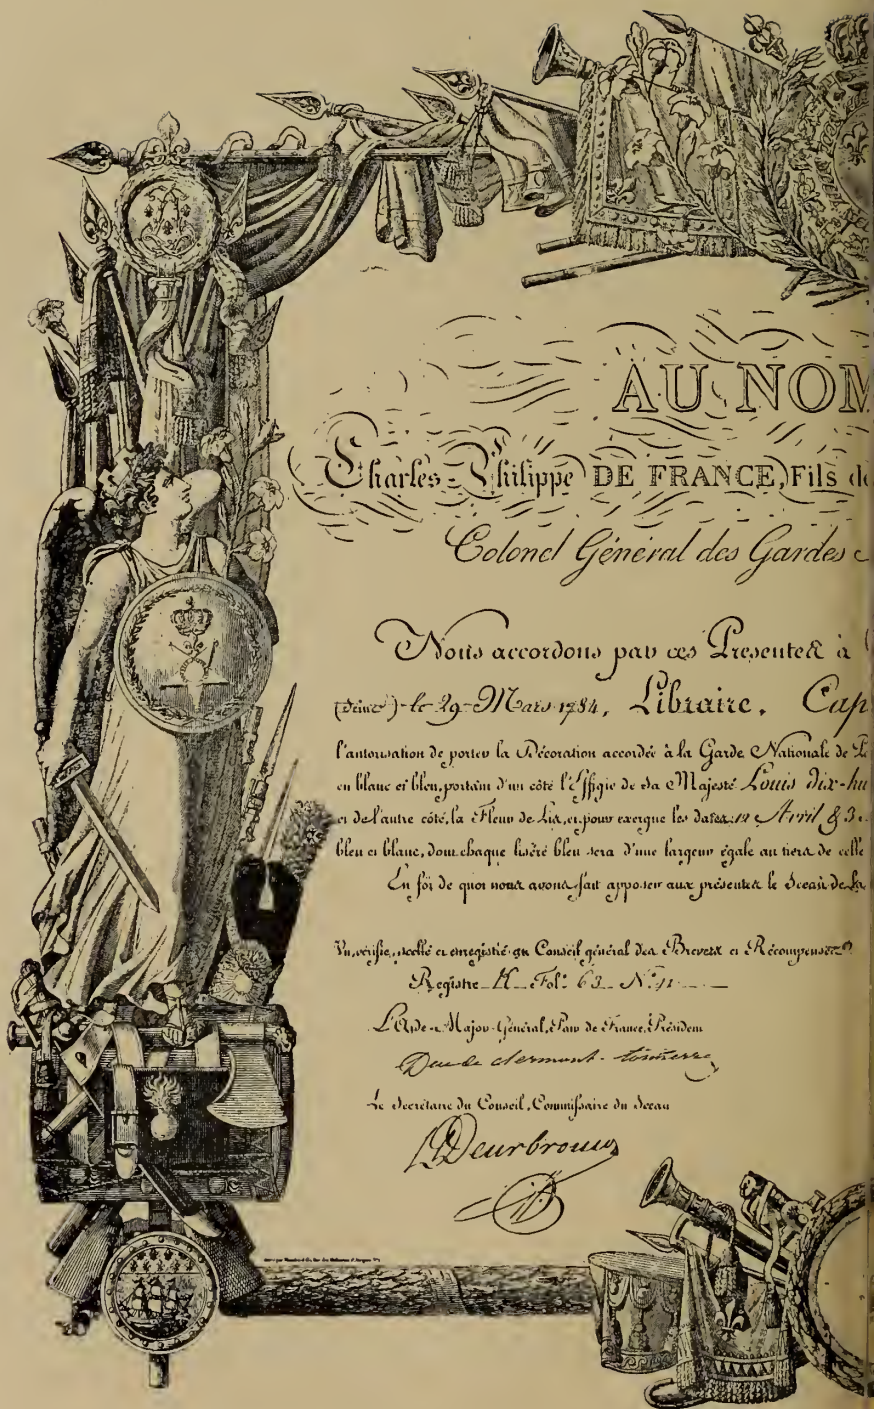 AU NOM
Charles-Philippe DE FRANCE, Fils de
Colonel Général des Gardes
Nous accordons par ces Présentes à
(Seine) le 29 Mars 1784, Libraire, Cap
l'autorisation de porter la Décoration accordée à la Garde Nationale de
en blanc et bleu, portant d'un côté l'Effigie de Sa Majesté Louis dix-hu
et de l'autre côté, la Fleur de Lis, et pour exergue les dates: 12 Avril & 3
bleu et blanc, dont chaque liséré bleu sera d'une largeur égale au tiers de celle
En foi de quoi nous avons fait apposer aux présentes le Sceau de la
Vu, vérifié, scellé et enregistré au Conseil général des Brevets et Récompenses
Registre K Fol: 63 N.º 11
L'Aide-Major-Général, Pair de France, Président
Duc de clermont-tonnerre
Le Secrétaire du Conseil, Commissaire du Sceau